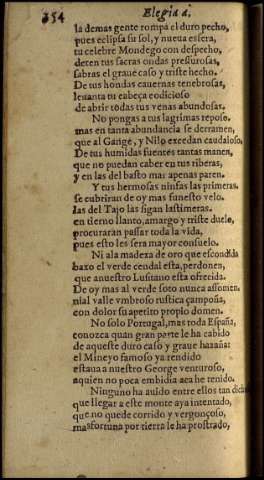 254 Elegia á,
la demas gente rompa el duro pecho,
pues eclipsa su sol, y nueua esfera,
tu celebre Mondego con despecho,
deten tus sacras ondas pressurosas,
sabras el graue caso y triste hecho.
De tus hondas cauernas tenebrosas,
leuanta tu cabeça codicioso
de abrir todas tus venas abundosas.
No pongas a tus lagrimas reposo,
mas en tanta abundancia se derramen,
que al Gange, y Nilo excedan caudaloso,
De tus humidas fuentes tantas manen,
que no puedan caber en tus riberas,
y en las del basto mar apenas paren.
Y tus hermosas ninfas las primeras,
se cubriran de oy mas funesto velo,
las del Tajo las sigan lastimeras.
en tierno llanto, amargo y triste duelo,
procuraran passar toda la vida,
pues esto les sera mayor consuelo.
Ni ala madexa de oro que escondida
baxo el verde cendal esta, perdonen,
que anuestro Lusitano esta ofrecida.
De oy mas al verde soto nunca assomen
nial valle vmbroso rustica campoña,
con dolor su apetito propio domen.
No solo Portugal, mas toda España,
conozca quan gran parte le ha cabido
de aqueste duro caso y graue hazaña:
el Mineyo famoso ya rendido
estaua a nuestro George venturoso,
aquien no poca embidia aca he tenido.
Ninguno ha auido entre ellos tan
que llegar a este monte aya intentado,
que no quede corrido y vergonçoso,
mas fortuna por tierra le ha prostrado,